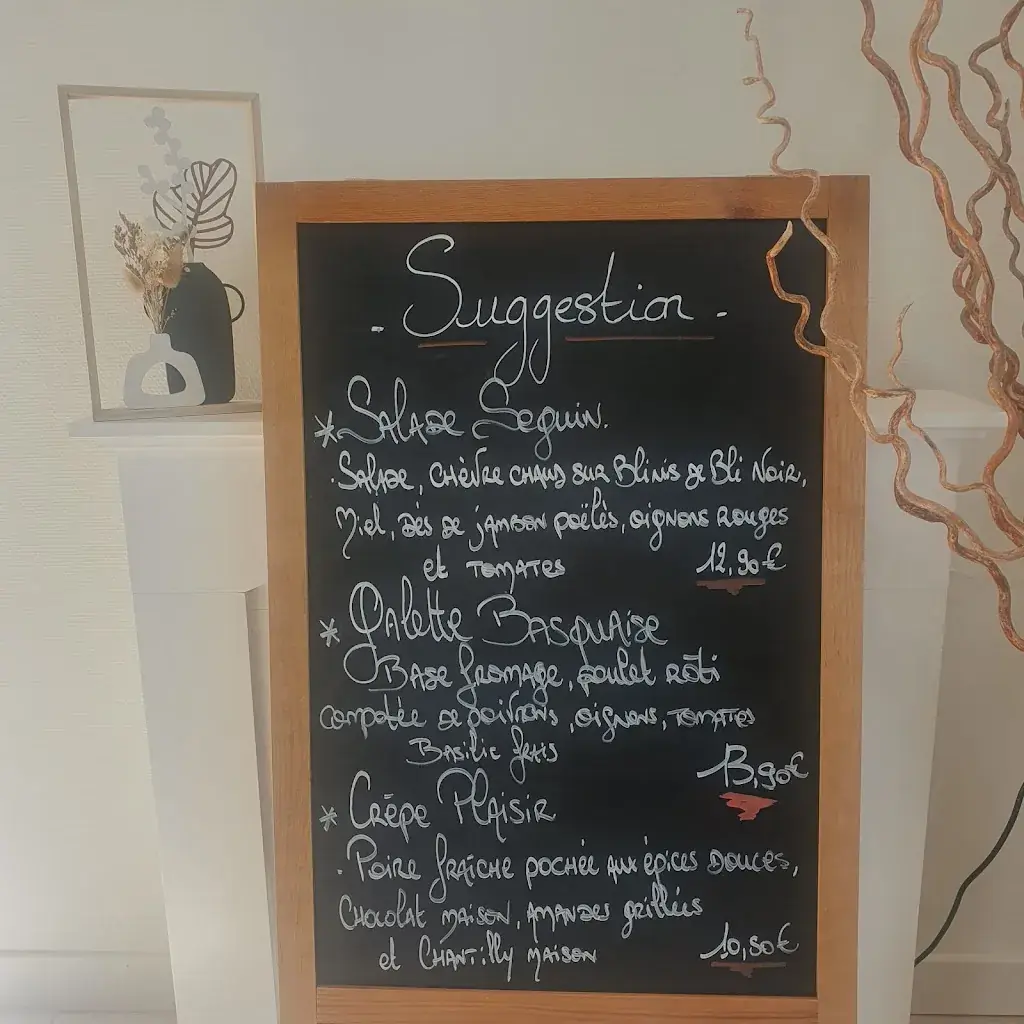 - Suggestion -
* Salade Seguin.
. Salade, chèvre chaud sur Blinis de Blé Noir,
Miel, dés de jambon poêlés, oignons rouges
et tomates 12,90€
* Galette Basquaise
Base fromage, poulet rôti
compotée de poivrons, oignons, tomates
Basilic frais 13,90€
* Crêpe Plaisir
. Poire fraîche pochée aux épices douces,
Chocolat maison, amandes grillées
et Chantilly maison 10,50€